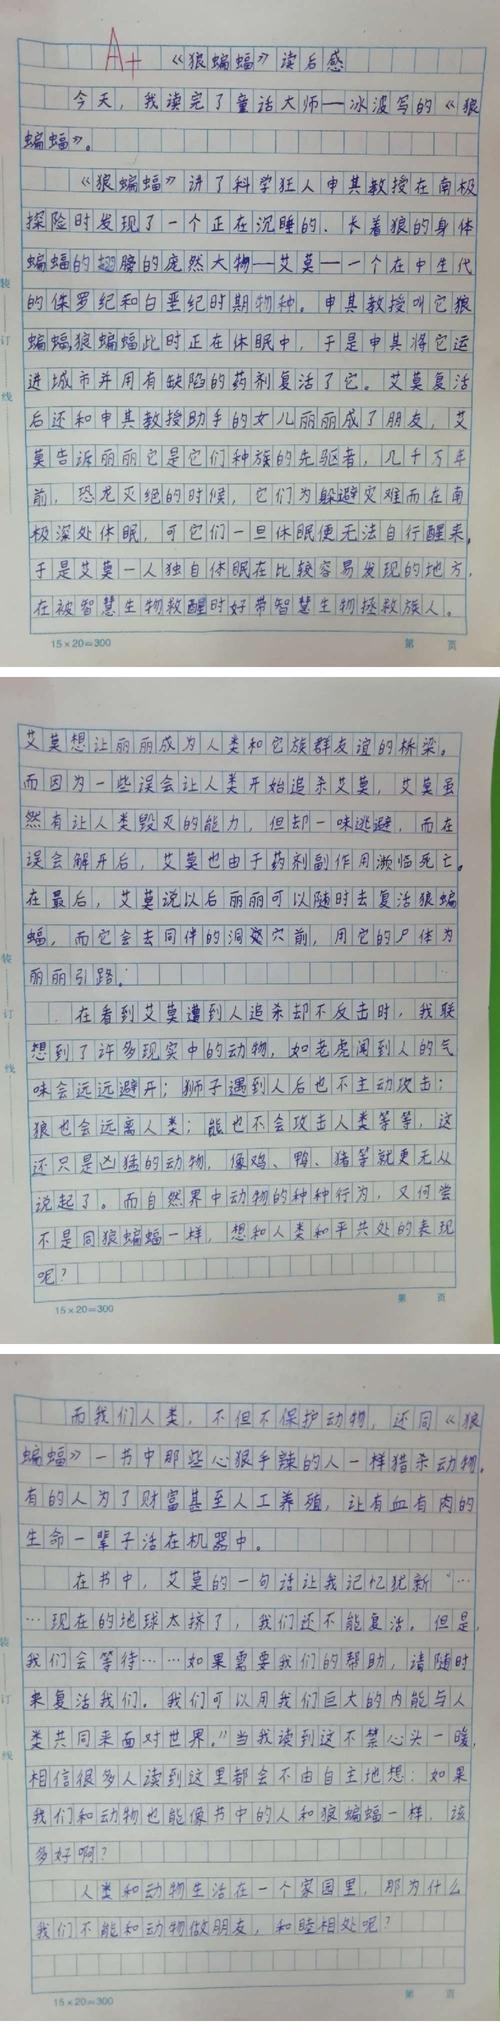 A+
《狼蝙蝠》读后感
今天，我读完了童话大师—冰波写的《狼
蝙蝠》。
《狼蝙蝠》讲了科学狂人申其教授在南极
探险时发现了一个正在沉睡的、长着狼的身体
蝙蝠的翅膀的庞然大物—艾莫—一个在中生代
的侏罗纪和白垩纪时期物种。申其教授叫它狼
蝙蝠狼蝙蝠此时正在休眠中，于是申其将它运
进城市并用有缺陷的药剂复活了它。艾莫复活
后还和申其教授助手的女儿丽丽成了朋友，艾
莫告诉丽丽它是它们种族的先驱者，几千万年
前，恐龙灭绝的时候，它们为躲避灾难而在南
极深处休眠，可它们一旦休眠便无法自行醒来，
于是艾莫一人独自休眠在比较容易发现的地方，
在被智慧生物救醒时好带智慧生物拯救族人。
15×20=300
第 页
装
订
线
艾莫想让丽丽成为人类和它族群友谊的桥梁。
而因为一些误会让人类开始追杀艾莫，艾莫虽
然有让人类毁灭的能力，但却一味逃避，而在
误会解开后，艾莫也由于药剂副作用濒临死亡。
在最后，艾莫说以后丽丽可以随时去复活狼蝙
蝠，而它会去同伴的洞穴前，用它的尸体为
丽丽引路。
在看到艾莫遭到人追杀却不反击时，我联
想到了许多现实中的动物，如老虎闻到人的气
味会远远避开；狮子遇到人后也不主动攻击；
狼也会远离人类；熊也不会攻击人类等等，这
还只是凶猛的动物，像鸡、鸭、猪等就更无从
说起了。而自然界中动物的种种行为，又何尝
不是同狼蝙蝠一样，想和人类和平共处的表现
呢？
15×20=300
第 页
装
订
线
而我们人类，不但不保护动物，还同《狼
蝙蝠》一书中那些心狠手辣的人一样猎杀动物。
有的人为了财富甚至人工养殖，让有血有肉的
生命一辈子活在机器中。
在书中，艾莫的一句话让我记忆犹新“…
…现在的地球太挤了，我们还不能复活。但是，
我们会等待……如果需要我们的帮助，请随时
来复活我们。我们可以用我们巨大的内能与人
类共同来面对世界。”当我读到这不禁心头一暖，
相信很多人读到这里都会不由自主地想：如果
我们和动物也能像书中的人和狼蝙蝠一样，该
多好啊？
人类和动物生活在一个家园里，那为什么
我们不能和动物做朋友，和睦相处呢？
15×20=300
第 页
装
订
线